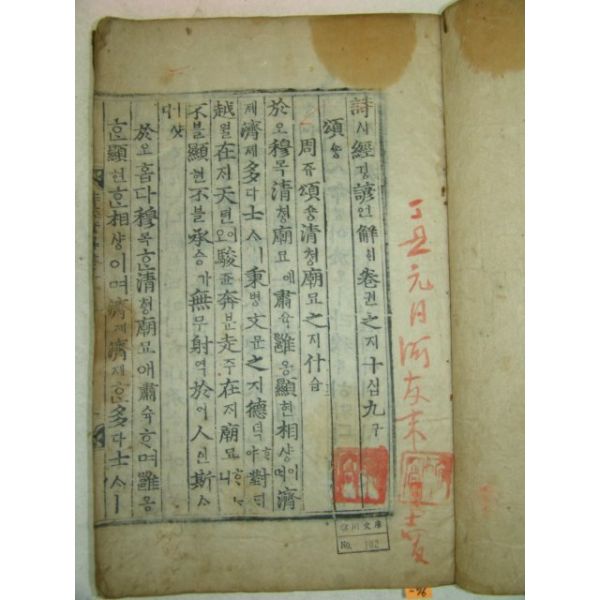 丁丑元日河友
詩시經경諺언解ᄒᆡ卷권之지十십九구
頌숑
周쥬頌숑淸쳥廟묘之지什습
於오穆목淸쳥廟묘애肅슉雝옹顯현相샹이며濟
졔濟졔多다士ᄉᆞㅣ秉병文문之지德덕ᄒᆞ야對ᄃᆡ
越월在ᄌᆡ天텬이오駿쥰奔분走주在ᄌᆡ廟묘ᄒᆞᄂᆞ니
不블顯현不블承승가無무射역於어人인斯ᄉᆞ
ㅣ샷다
於오홉다穆목ᄒᆞᆫ淸쳥廟묘애肅슉ᄒᆞ며雝옹
ᄒᆞᆫ顯현ᄒᆞᆫ相샹이며濟졔濟졔ᄒᆞᆫ多다士ᄉᆞㅣ
No. 192
-76